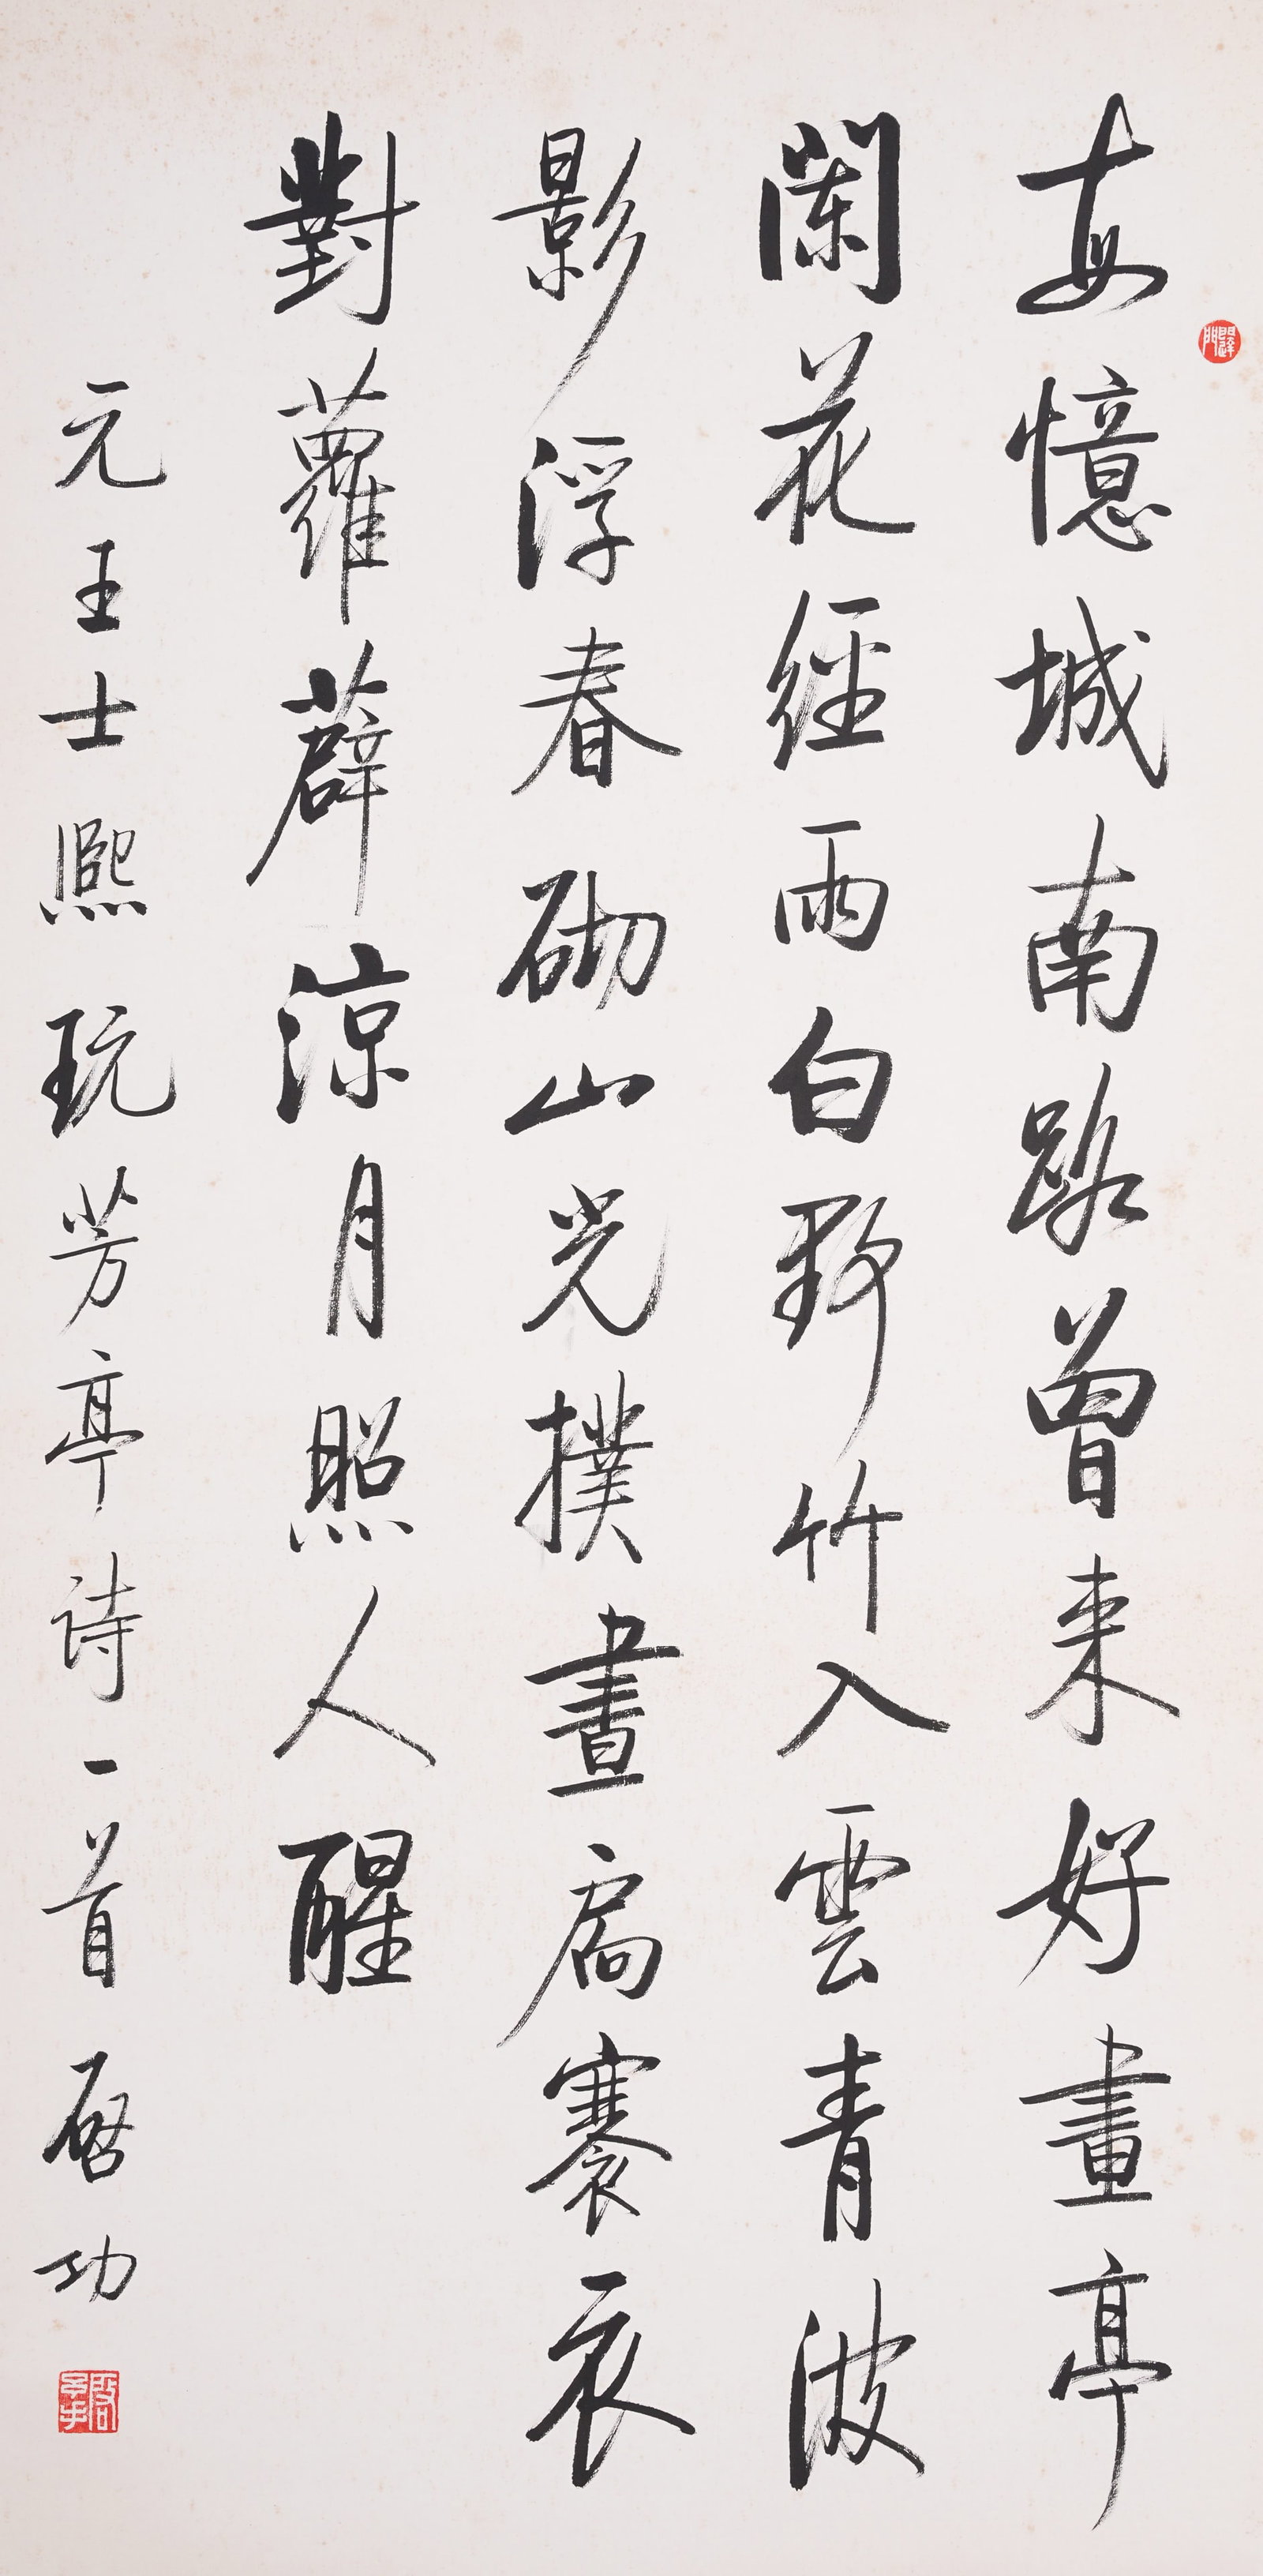 每憶城南路曾来好畫亭
闌花經雨白野竹入雲青波
影浮春砌山光撲晝扃褰衣
對蘿薜涼月照人醒
元王士熙玩芳亭诗一首 啓功